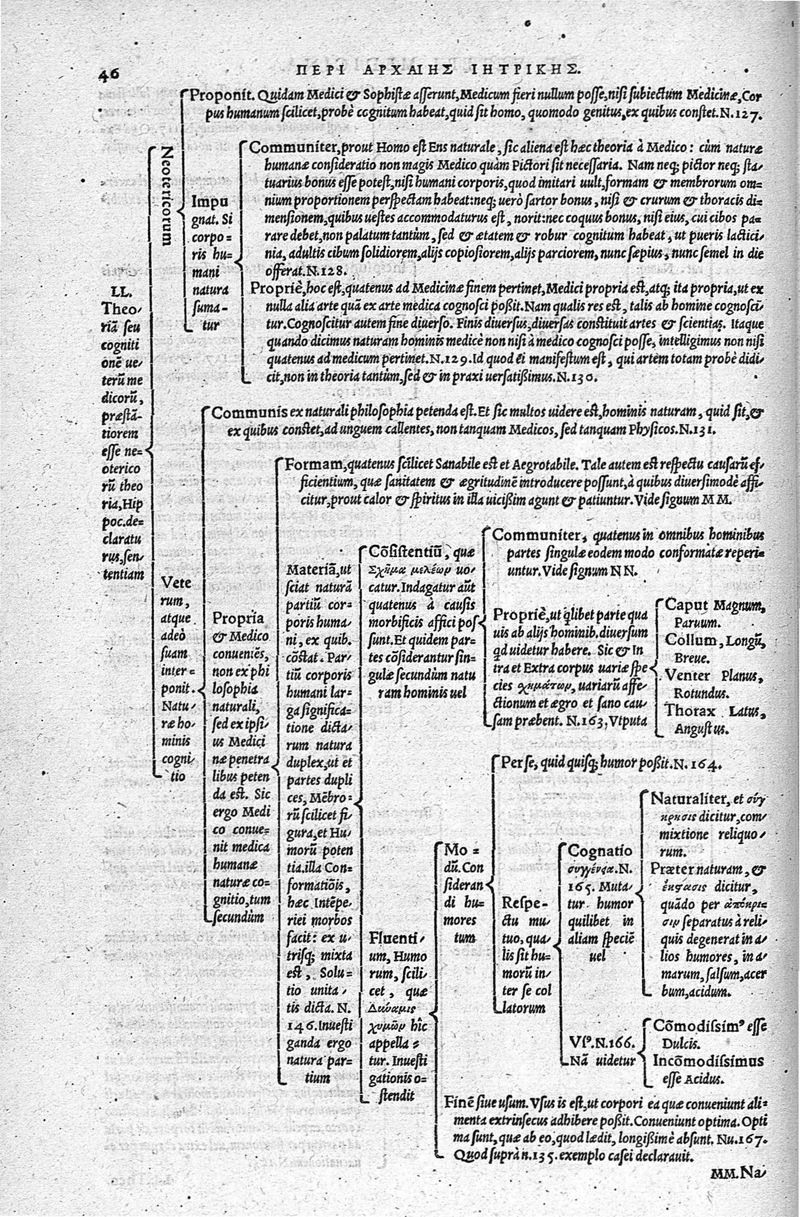 46
ΠΕΡΙ ΑΡΧΑΙΗΣ ΙΗΤΡΙΚΗΣ.
LL.
Theo=
riã seu
cogniti
onẽ ue=
terũ me
dicorũ,
præstã=
tiorem
esse ne=
oterico
rũ theo
ria, Hip
poc. de=
claratu
rus, sen=
tentiam
Neotericorum
Proponit. Quidam Medici & Sophistæ asserunt, Medicum fieri nullum posse, nisi subiectum Medicinæ, Cor
pus humanum scilicet, probè cognitum habeat, quid sit homo, quomodo genitus, ex quibus constet. N. 127.
Impu
gnat. Si
corpo=
ris hu=
mani
natura
suma=
tur
Communiter, prout Homo est Ens naturale, sic aliena est hæc theoria à Medico: cùm naturæ
humanæ consideratio non magis Medico quàm Pictori sit necessaria. Nam neq; pictor neq; sta=
tuarius bonus esse potest, nisi humani corporis, quod imitari uult, formam & membrorum om=
nium proportionem perspectam habeat: neq; uerò sartor bonus, nisi & crurum & thoracis di=
mensionem, quibus uestes accommodaturus est, norit: nec coquus bonus, nisi eius, cui cibos pa=
rare debet, non palatum tantùm, sed & ætatem & robur cognitum habeat, ut pueris lactici=
nia, adultis cibum solidiorem, alijs copiosiorem, alijs parciorem, nunc sæpius, nunc semel in die
offerat. N. 128.
Propriè, hoc est, quatenus ad Medicinæ finem pertinet, Medici propria est, atq; ita propria, ut ex
nulla alia arte quã ex arte medica cognosci poßit. Nam qualis res est, talis ab homine cognosci=
tur. Cognoscitur autem fine diuerso. Finis diuersus, diuersas constituit artes & scientias. Itaque
quando dicimus naturam hominis medicè non nisi à medico cognosci posse, intelligimus non nisi
quatenus ad medicum pertinet. N. 129. Id quod ei manifestum est, qui artem totam probè didi=
cit, non in theoria tantùm, sed & in praxi uersatißimus. N. 130.
Vete
rum,
atque
adeò
suam
inter=
ponit.
Natu=
ræ ho=
minis
cogni
tio
Communis ex naturali philosophia petenda est. Et sic multos uidere est, hominis naturam, quid sit, &
ex quibus constet, ad unguem callentes, non tanquam Medicos, sed tanquam Physicos. N. 131.
Propria
& Medico
conueniẽs,
non ex phi
losophia
naturali,
sed ex ipsi=
us Medici
næ penetra
libus peten
da est. Sic
ergo Medi
co conue=
nit medica
humanæ
naturæ co=
gnitio, tum
secundùm
Formam, quatenus scilicet Sanabile est et Aegrotabile. Tale autem est respectu causarũ ef=
ficientium, quæ sanitatem & ægritudinẽ introducere possunt, à quibus diuersimodè affi=
citur, prout calor & spiritus in illa uicißim agunt & patiuntur. Vide signum MM.
Materiã, ut
sciat naturã
partiũ cor=
poris huma
ni, ex quib.
cõstat. Par=
tiũ corporis
humani lar=
ga significa=
tione dicta=
rum natura
duplex, ut et
partes dupli
ces, Mẽbro=
rũ scilicet fi
gura, et Hu=
morũ poten
tia. illa Con=
formatiõis,
hæc Intẽpe=
riei morbos
facit: ex u=
trisq; mixta
est, Solu=
tio unita=
tis dicta. N.
146. Inuesti
ganda ergo
natura par=
tium
Cõsistentiũ, quæ
Σχῆμα μελέων uo=
catur. Indagatur aũt
quatenus à causis
morbificis affici pos
sunt. Et quidem par=
tes cõsiderantur sin=
gulæ secundùm natu
ram hominis uel
Communiter, quatenus in omnibus hominibus
partes singulæ eodem modo conformatæ reperi=
untur. Vide signum NN.
Propriè, ut q̃libet parte qua
uis ab alijs hominib. diuersum
qd uidetur habere. Sic & In
tra et Extra corpus uariæ spe
cies σχημάτων, uariarũ affe=
ctionum et ægro et sano cau=
sam præbent. N. 163, Vtputa
Caput Magnum,
Paruum.
Collum, Longũ,
Breue.
Venter Planus,
Rotundus.
Thorax Latus,
Angustus.
Fluenti=
um, Humo
rum, scili=
cet, quæ
Δυνάμις
χυμῶν hîc
appella=
tur. Inuesti
gationis o=
stendit
Mo=
dũ. Con
sideran
di hu=
mores
tum
Per se, quid quisq; humor poßit. N. 164.
Respe=
ctu mu=
tuo, qua
lis sit hu=
morũ in=
ter se col
latorum
Cognatio
συγγένεα. N.
165. Muta=
tur humor
quilibet in
aliam speciẽ
uel
Naturaliter, et σύγ
κρησις dicitur, com
mixtione reliquo=
rum.
Præter naturam, &
ἔκστασις dicitur,
quãdo per ἀπόκρι=
σιν separatus à reli=
quis degenerat in a=
lios humores, in a=
marum, salsum, acer
bum, acidum.
Vsꝰ. N. 166.
Nã uidetur
Cõmodissimꝰ esse
Dulcis.
Incõmodissimus
esse Acidus.
Finẽ siue usum. Vsus is est, ut corpori ea quæ conueniunt ali=
menta extrinsecus adhibere poßit. Conueniunt optima. Opti
ma sunt, quæ ab eo, quod lædit, longißimè absunt. Nu. 167.
Quod suprà n. 135. exemplo casei declarauit.
MM. Na=